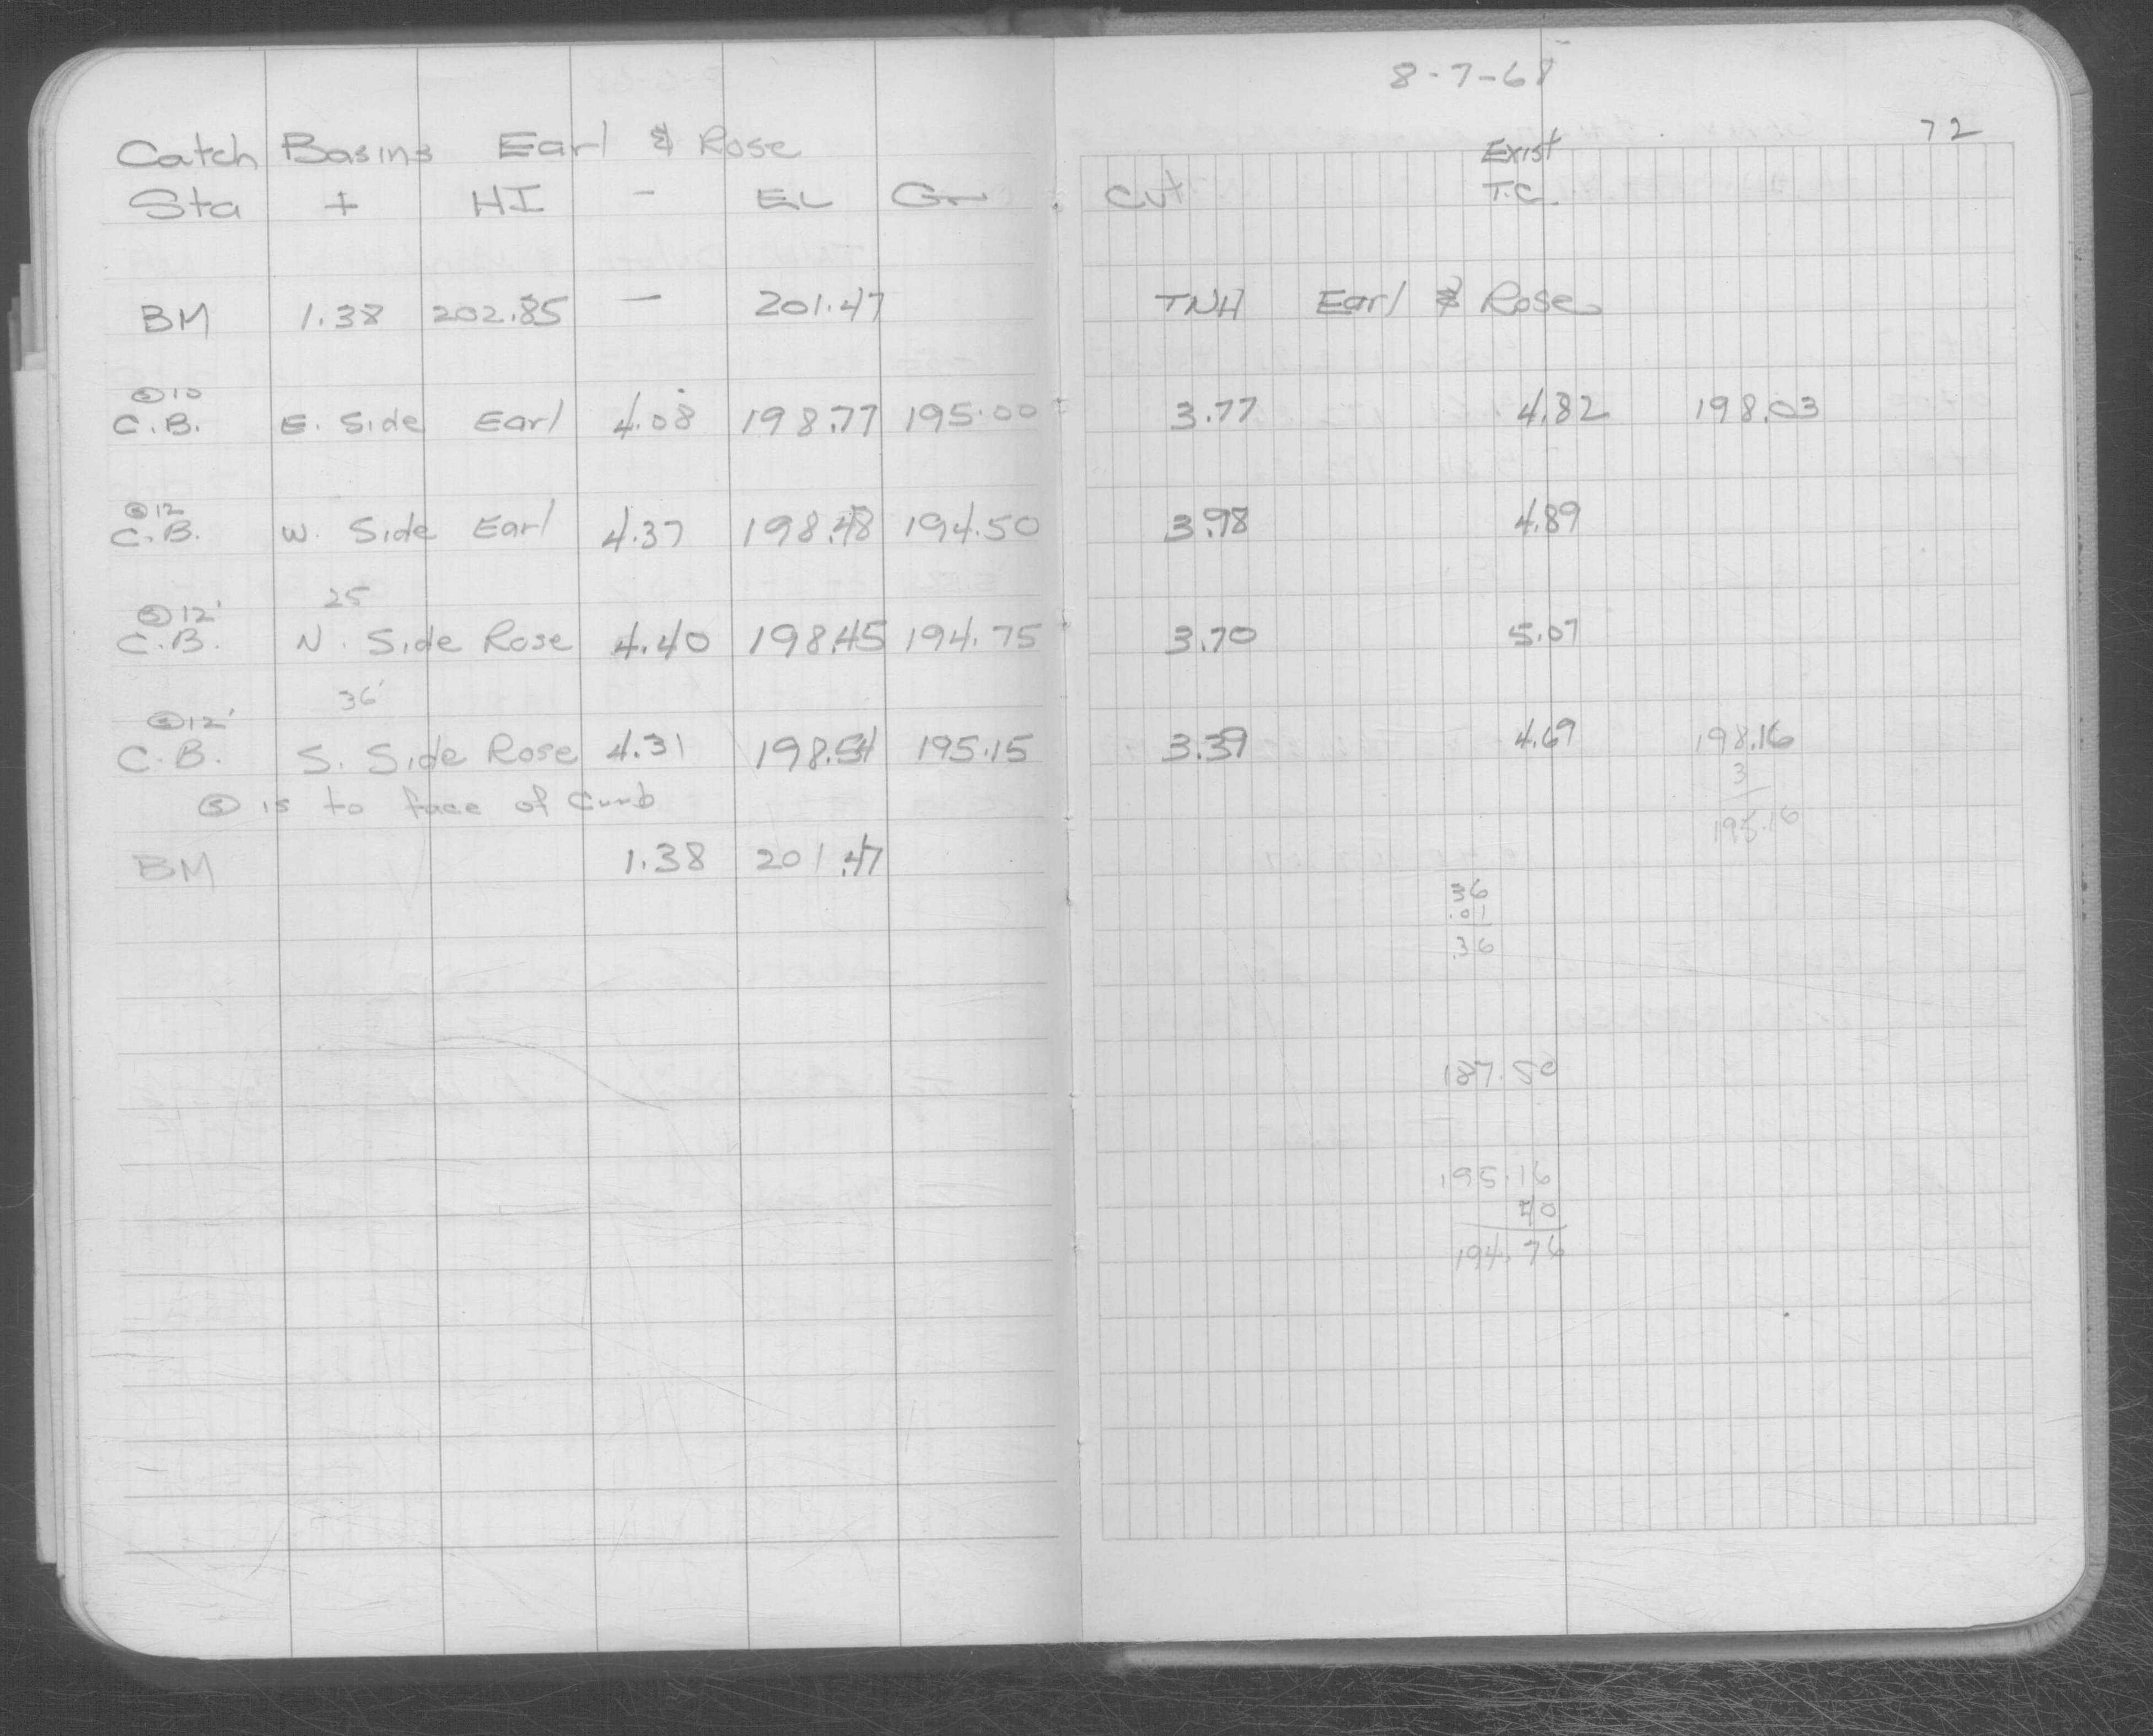 8-7-68
72
Catch Basins Earl & Rose
Exist
Sta + HI - EL Gr Cut T.C.
BM 1.38 202.85 — 201.47 TNH Earl & Rose
Ⓢ10
C.B. E. Side Earl 4.08 198.77 195.00 3.77 4.82 198.03
Ⓢ12
C.B. W. Side Earl 4.37 198.48 194.50 3.98 4.89
Ⓢ12' 25
C.B. N. Side Rose 4.40 198.45 194.75 3.70 5.07
Ⓢ12' 36'
C.B. S. Side Rose 4.31 198.54 195.15 3.39 4.69 198.16
3
Ⓢ is to face of Curb
195.16
BM 1.38 201.47
36
.01
.36
187.50
195.16
40
194.76